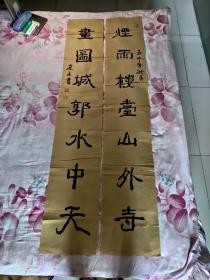 煙雨樓臺山外寺
畫圖城郭水中天